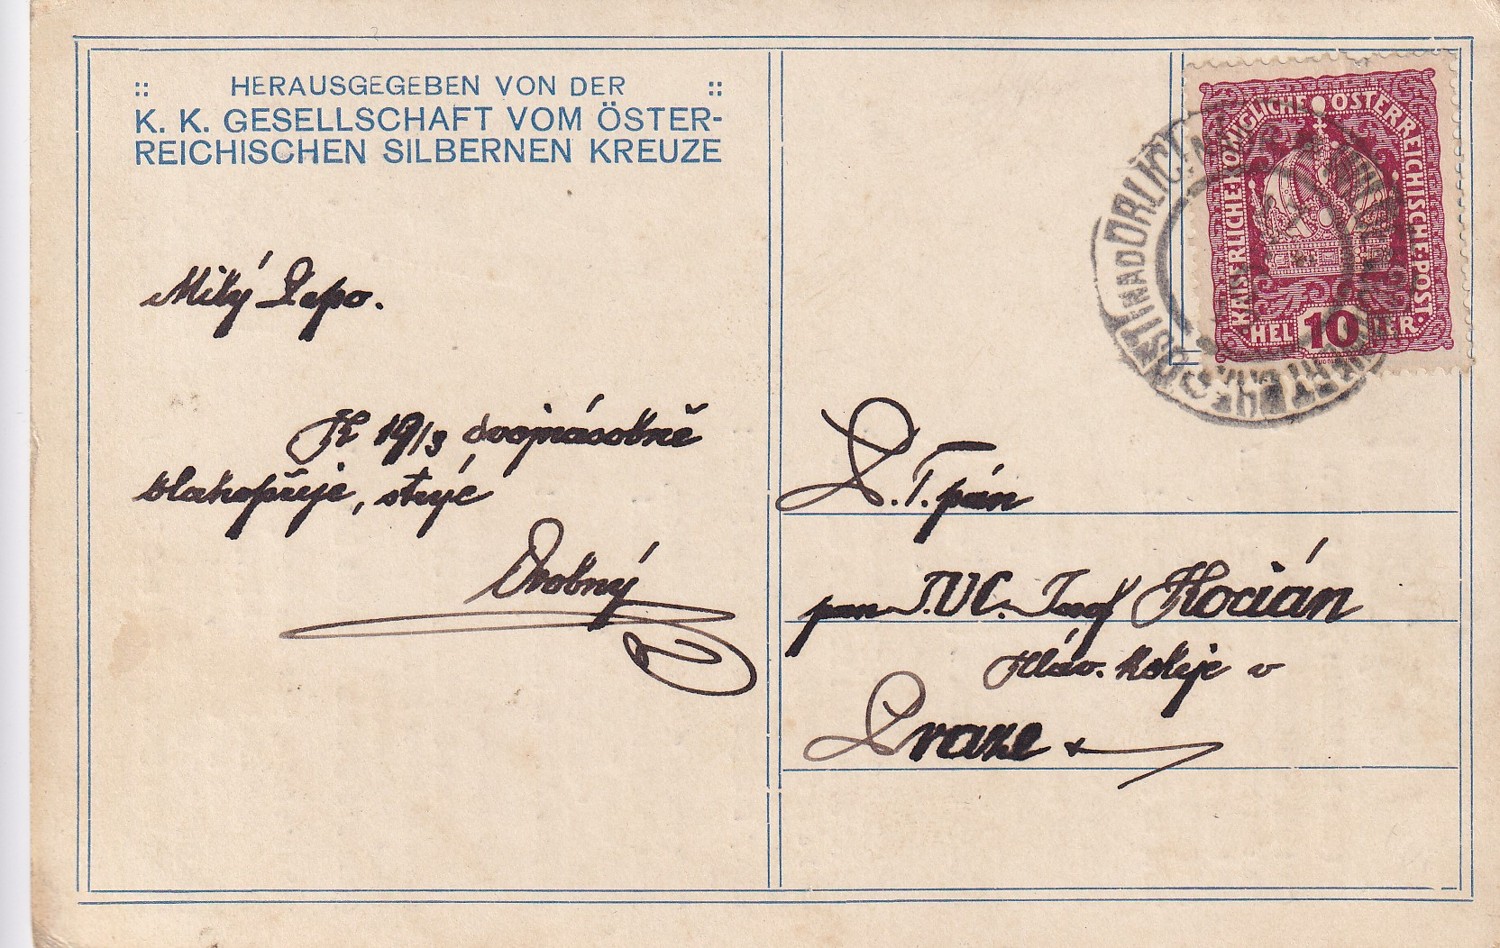 :: HERAUSGEGEBEN VON DER ::
K. K. GESELLSCHAFT VOM ÖSTER-
REICHISCHEN SILBERNEN KREUZE
Milý Pepo.
K 19/3 dvojnásobně
blahopřeje, strýc
Drobný
KAISERLICHE·KÖNIGLICHE ÖSTERREICHISCHE·POST·
HEL 10 LER
NAD ORLICÍ
P. T. pán
pan J.UC. Josef Kocián
Hláv. koleje v
Praze